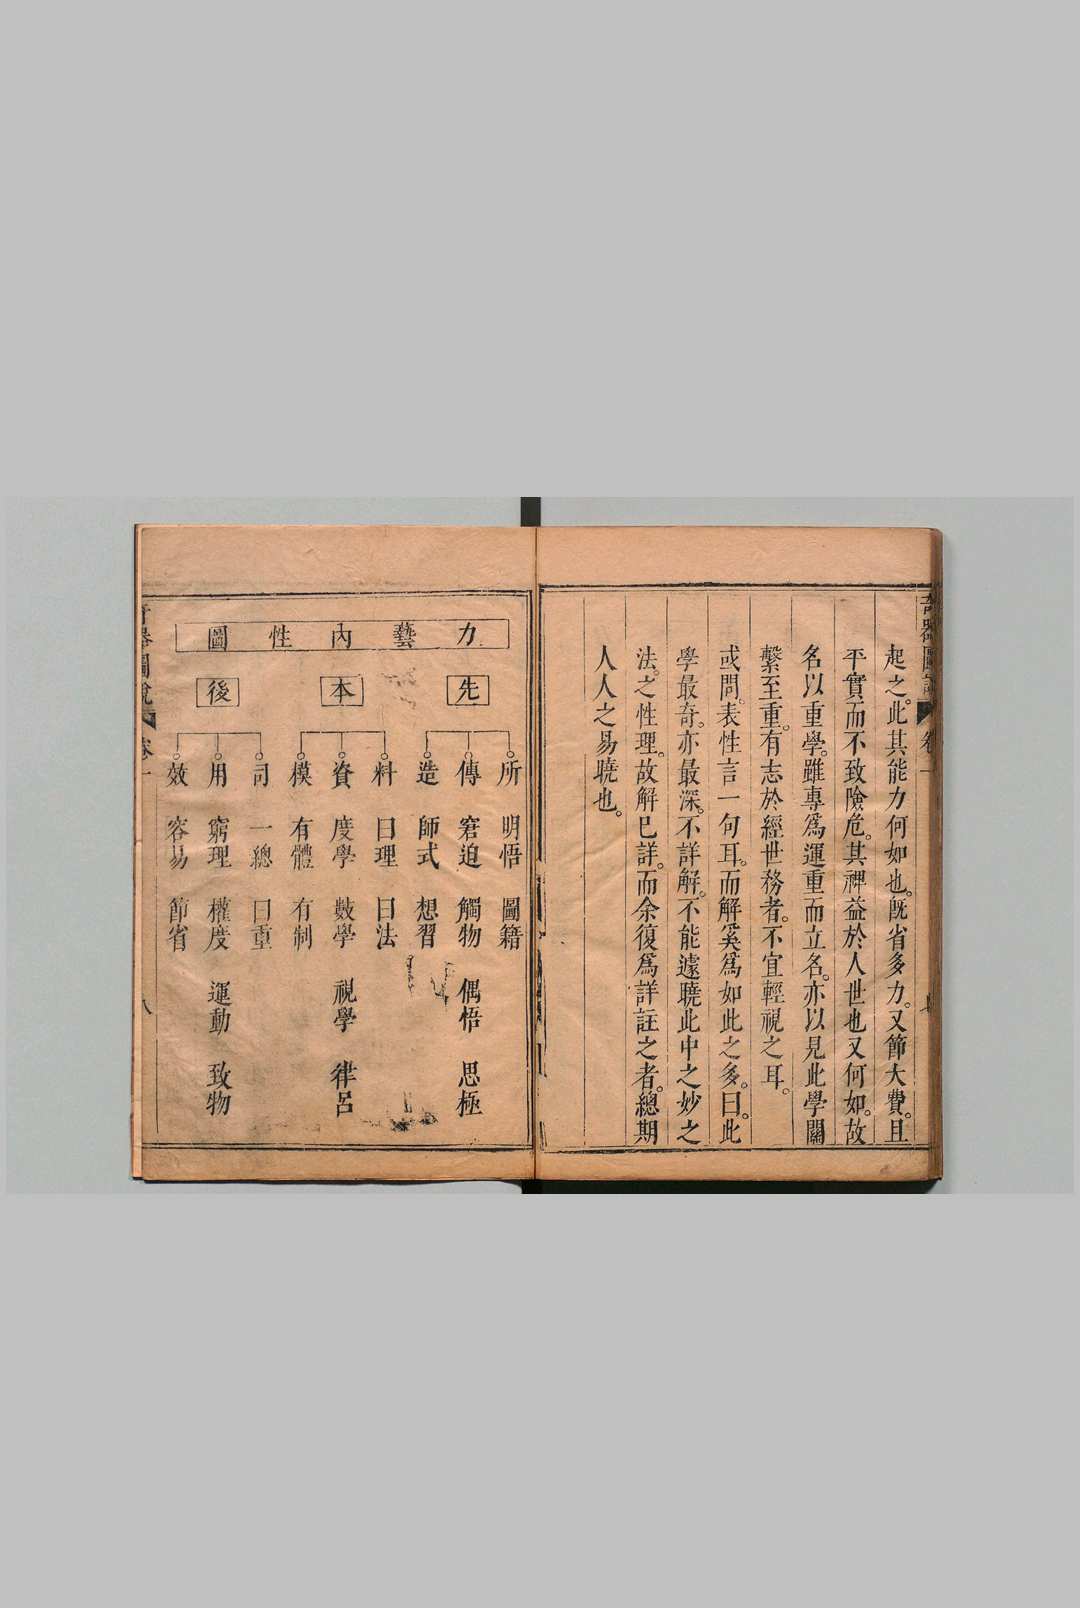 起之。此其能力何如也。旣省多力。又節大費。且
平實而不致險危。其裨益於人世也又何如。故
名以重學。雖專爲運重而立名。亦以見此學關
繫至重。有志於經世務者。不宜輕視之耳。
或問。表性言一句耳。而解奚爲如此之多。曰。此
學最奇。亦最深。不詳解。不能遽曉此中之妙之
法。之性理。故解已詳。而余復爲詳註之者。總期
人人之易曉也。
力藝內性圖
先
所 明悟 圖籍
傳 窘迫 觸物 偶悟 思極
造 師式 想習
本
料 曰理 曰法
資 度學 數學 視學 律呂
模 有體 有制
後
司 一總 曰重
用 窮理 權度 運動 致物
效 容易 節省
奇器圖說 卷一 八